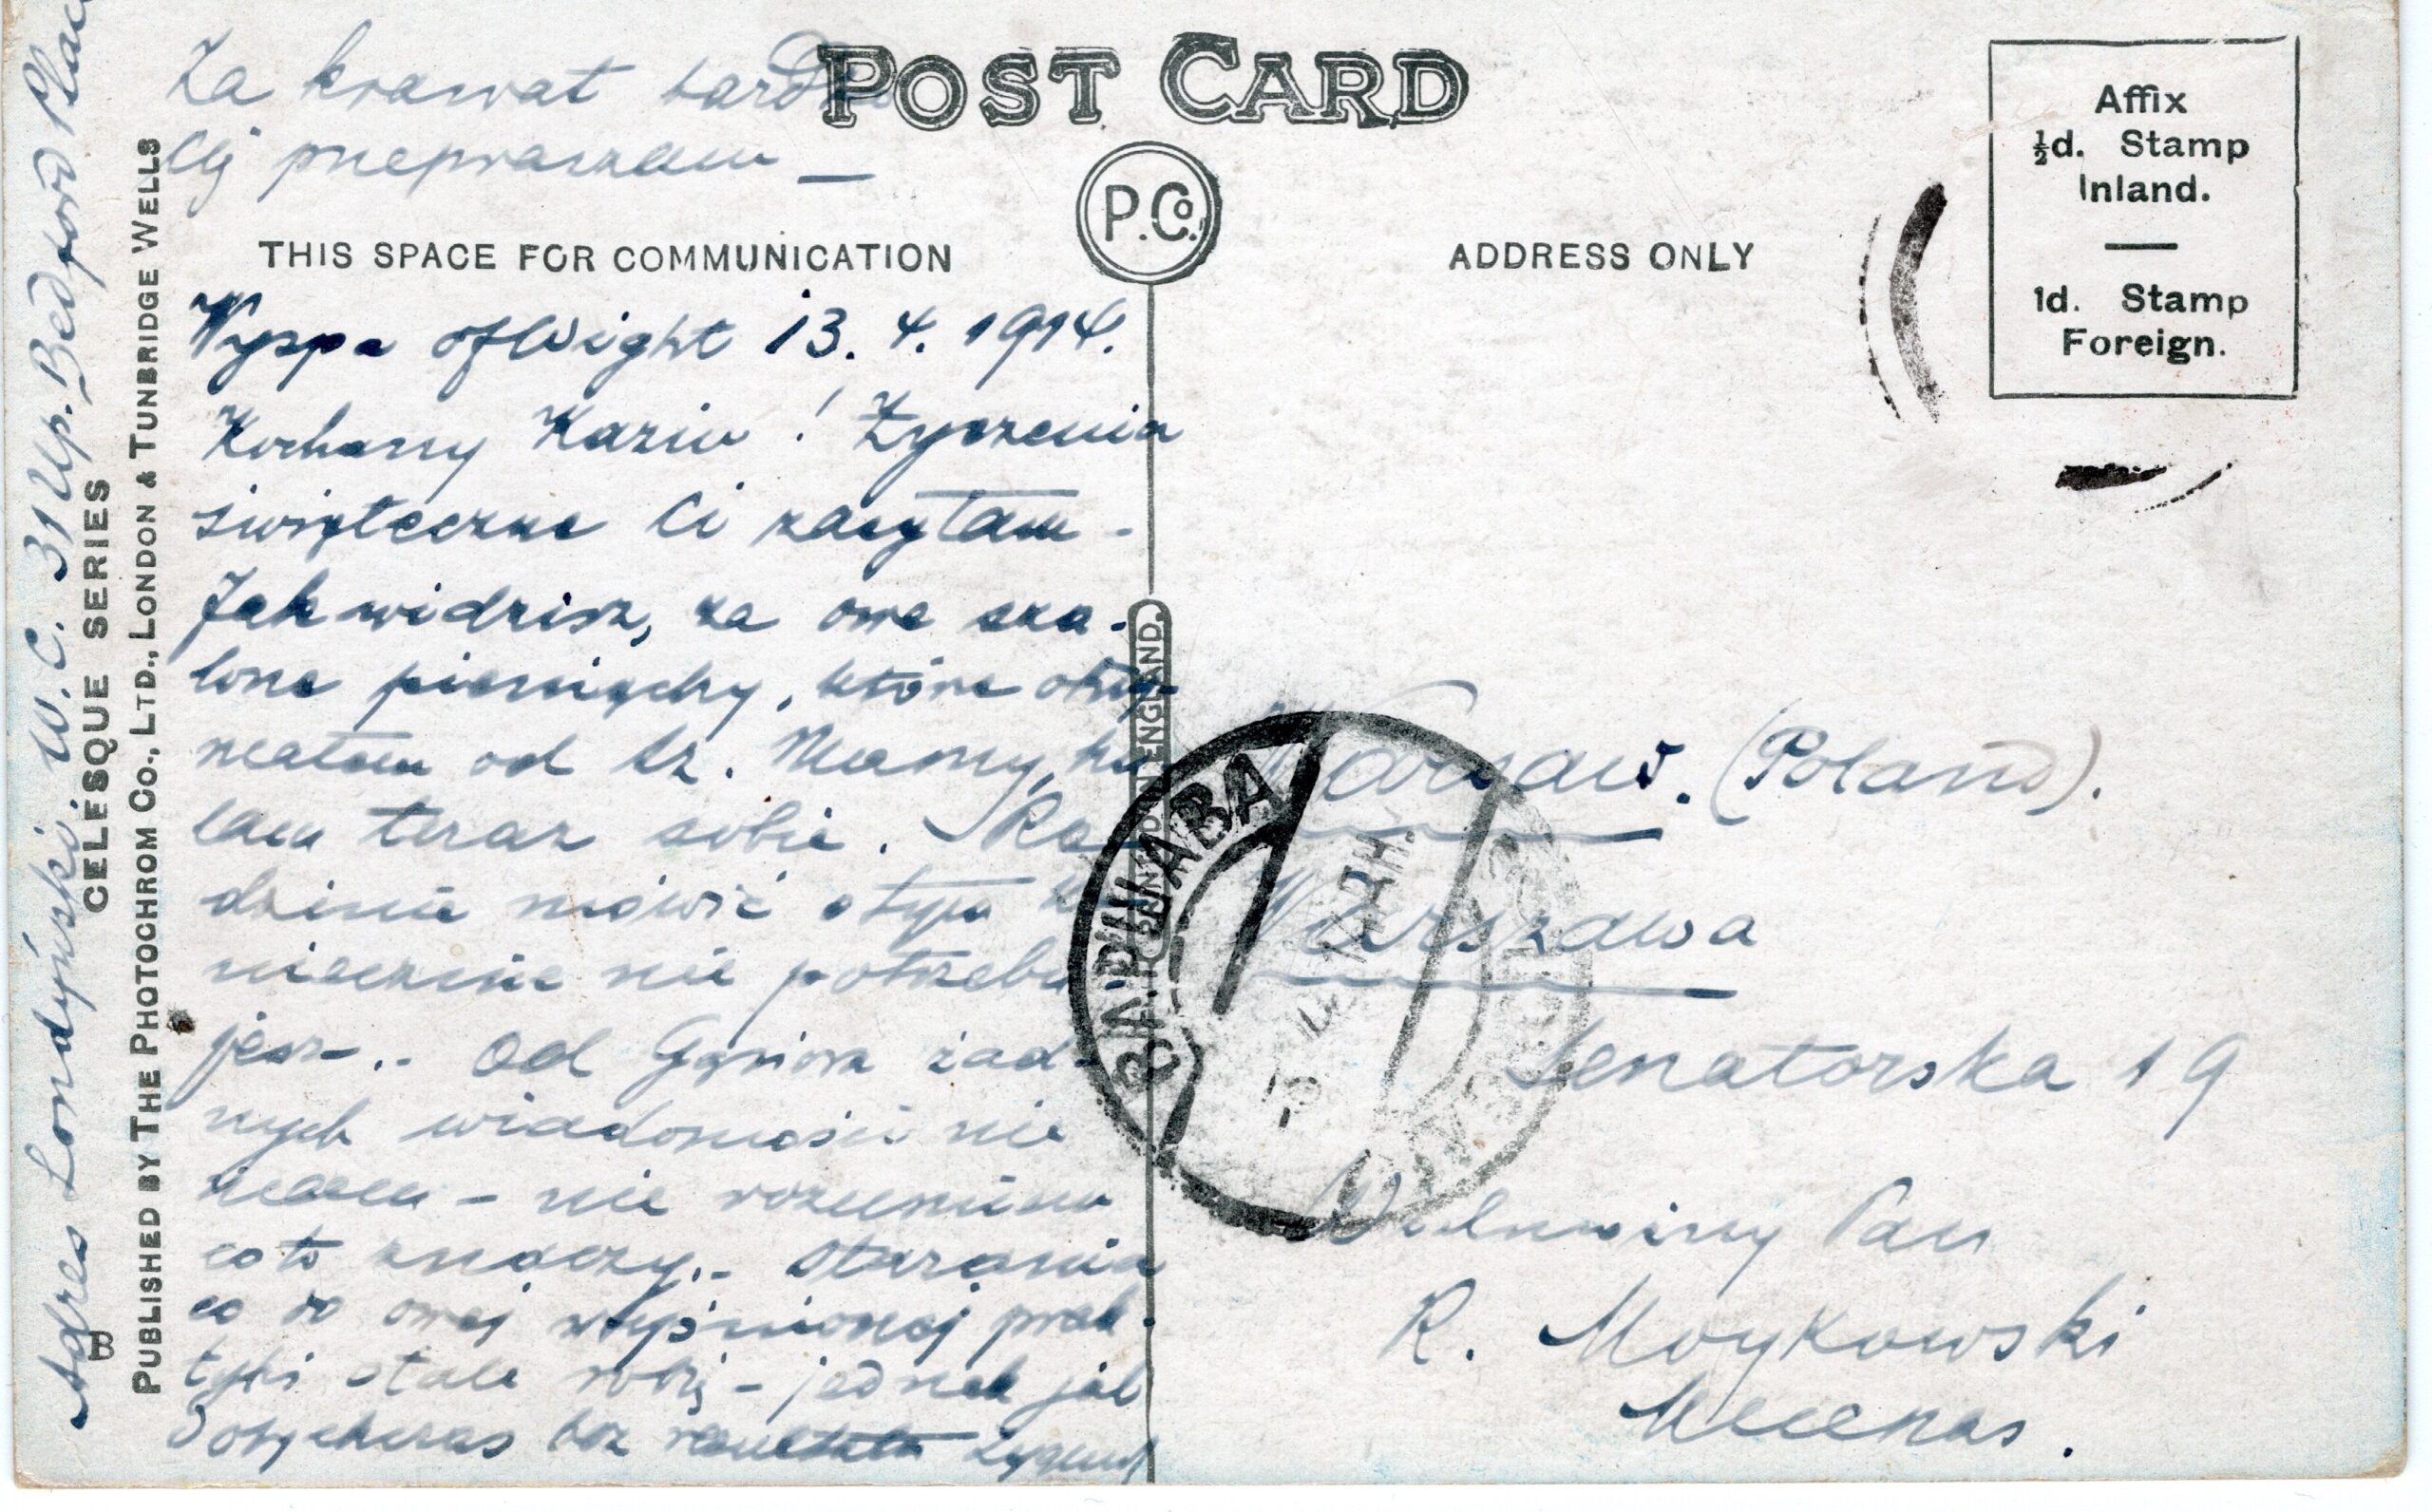 Za krawat bardzo
Cię przepraszam —
POST CARD
P. Co.
THIS SPACE FOR COMMUNICATION
ADDRESS ONLY
Affix
½d. Stamp
Inland.
1d. Stamp
Foreign.
Wyspa of Wight 13. 4. 1914.
Kochany Kaziu! Życzenia
świąteczne Ci zasyłam -
Jak widzisz, za owe sza-
lone pieniądze, które otrzy-
małem od Sz. Mamy, hu-
lam teraz sobie. Ro-
dzinie mówić o tym
nie potrzebu-
jesz.- Od Gąsiora żad-
nych wiadomości nie
mam - nie rozumiem
co to znaczy.- Starania
co do owej wyśnionej prak-
tyki stale robię - jednak jak
dotychczas bez rezultatu Zygmunt
Adres Londyński. W.C. 31 Up. Bedford Place
CELESQUE SERIES
B
PUBLISHED BY THE PHOTOCHROM CO., LTD., LONDON & TUNBRIDGE WELLS
PRINTED IN ENGLAND.
ВАРШАВА
Warsaw. (Poland).
Warszawa
Senatorska 19
Wielmożny Pan
R. Moykowski
Mecenas.